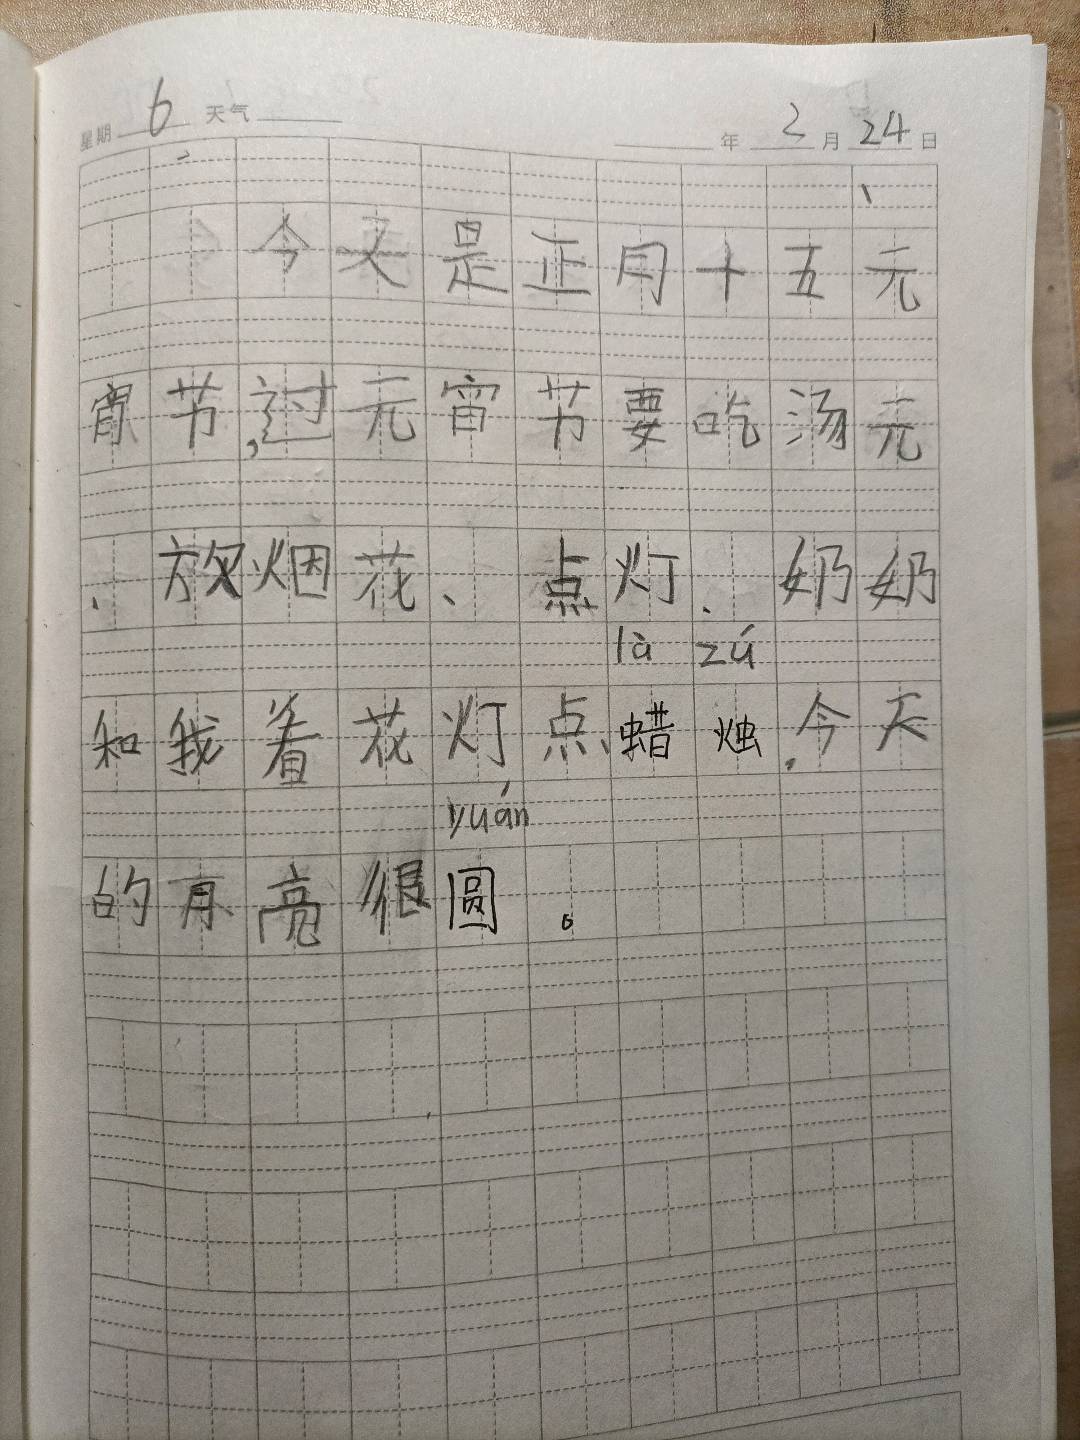 星期 6 天气 年 2 月 24 日
今又是正月十五元
宵节,过元宵节要吃汤元
、放烟花、点灯.奶奶
là zú
和我着花灯点、蜡烛,今天
yuán
的月亮很圆。